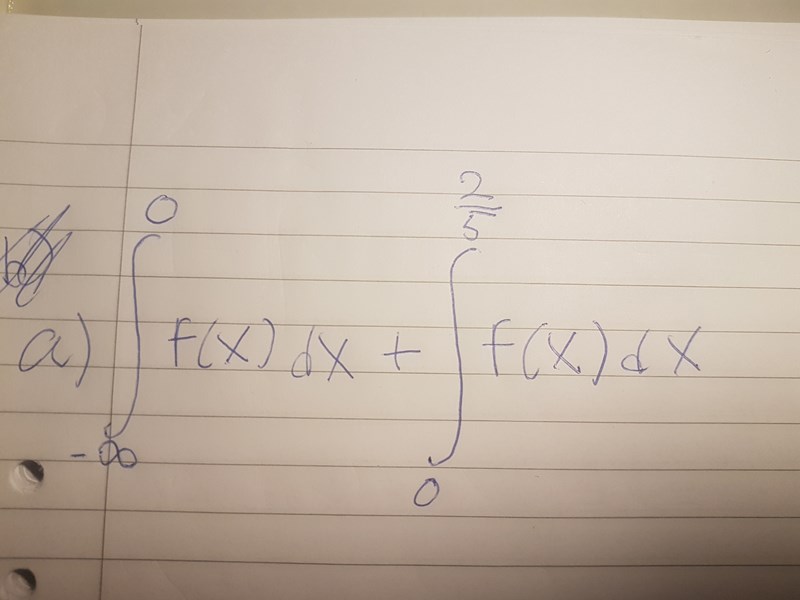 a) ∫_{-∞}^{0} f(x) dx + ∫_{0}^{2/5} f(x) dx